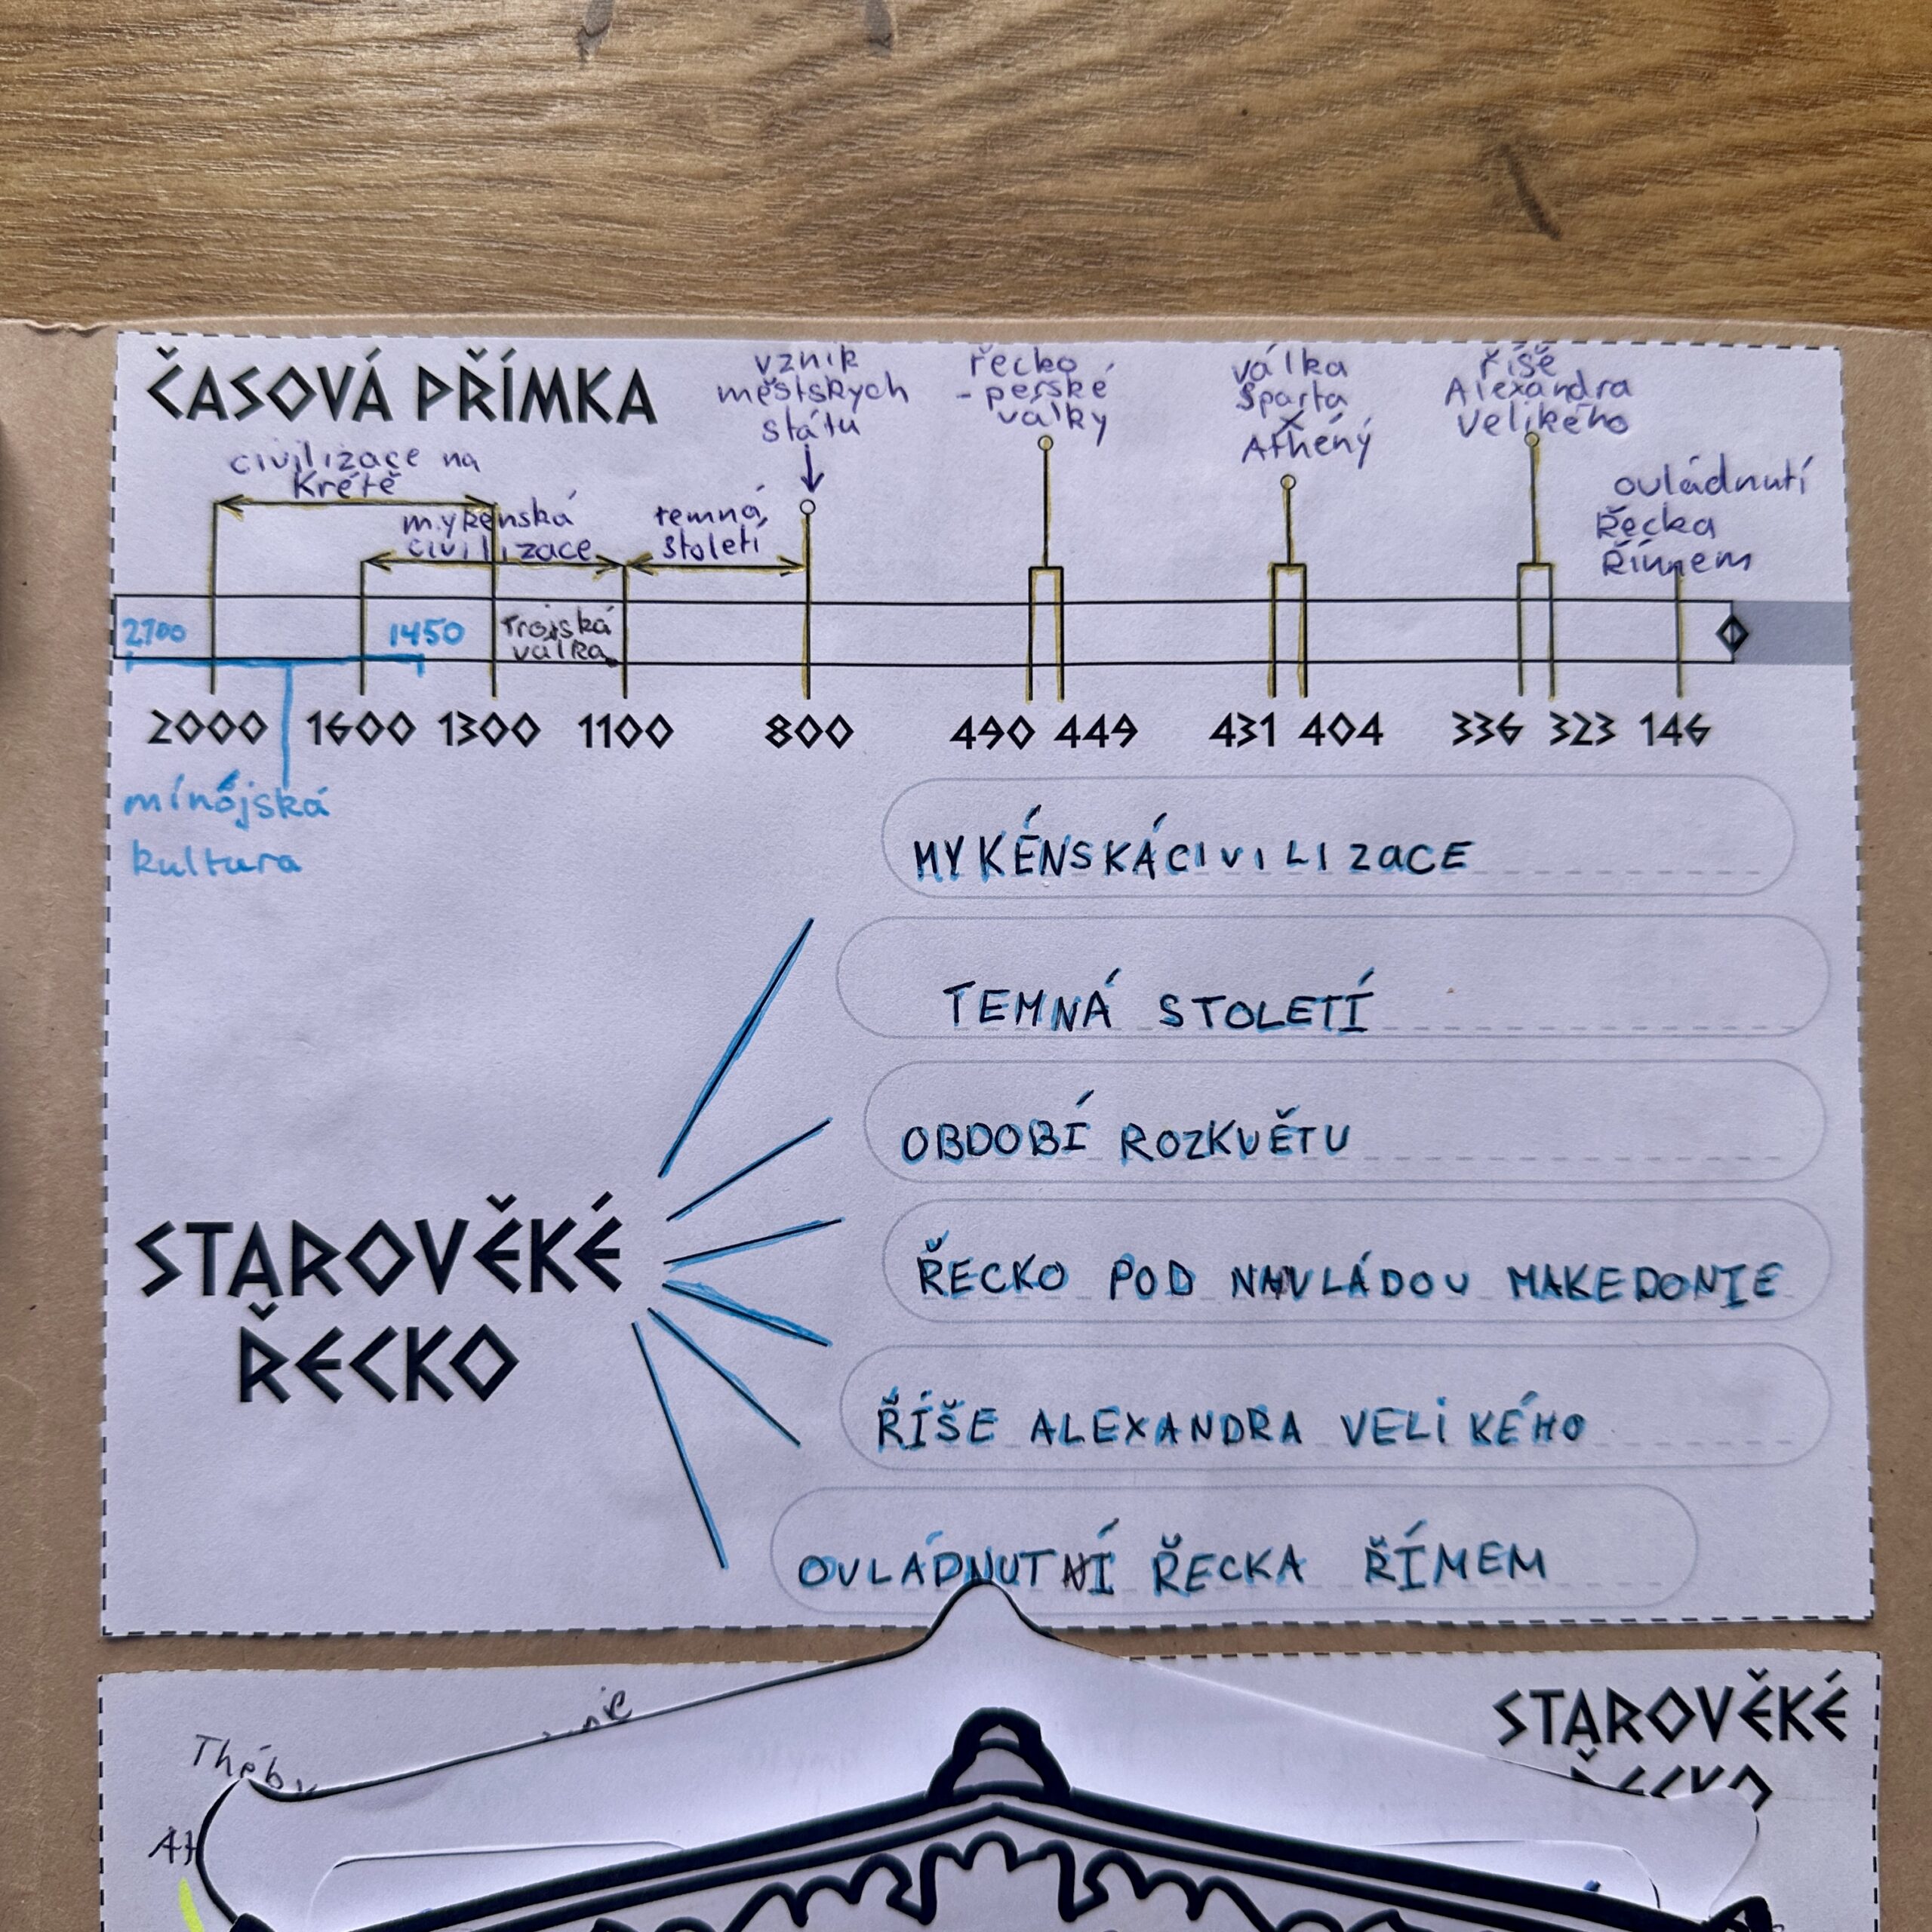 ČASOVÁ PŘÍMKA
vznik
městských
států
řecko
- perské
války
válka
Sparta
x
Athény
říše
Alexandra
Velikého
civilizace na
Krétě
mykénská
civilizace
temná
století
ovládnutí
Řecka
Římem
2700
1450
Trojská
válka
2000 1600 1300 1100 800 490 449 431 404 336 323 146
mínójská
kultura
MYKÉNSKÁ CIVILIZACE
TEMNÁ STOLETÍ
OBDOBÍ ROZKVĚTU
STAROVĚKÉ
ŘECKO
ŘECKO POD NADVLÁDOU MAKEDONIE
ŘÍŠE ALEXANDRA VELIKÉHO
OVLÁDNUTÍ ŘECKA ŘÍMEM
STAROVĚKÉ
ŘECKO
Théby